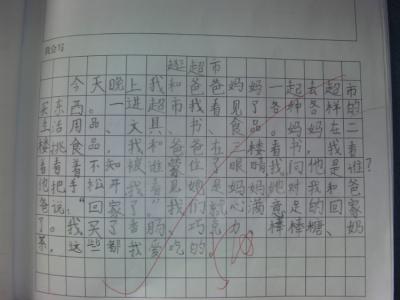 我会写
逛超市
今天晚上我和爸爸妈妈一起去超市
买东西。一进超市我看见了各种各样的
生活用品、文具、书、食品。妈妈在二
楼挑食品，我和爸爸在三楼看书，我看
着看着不知被谁蒙住了眼睛我问他是谁？
他把手松开我看见她是妈妈她对我和爸
爸说：“回家了。”我们就心满意足的回家
了。我买了香肠、巧克力、棒棒糖、奶
茶。这些都我爱吃的。